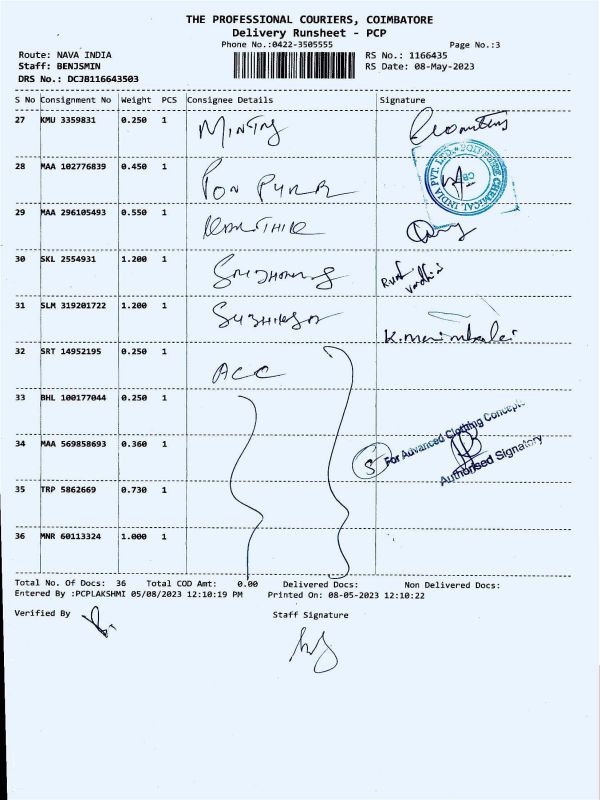 THE PROFESSIONAL COURIERS, COIMBATORE
Delivery Runsheet - PCP
Phone No.:0422-3505555
Page No.:3
Route: NAVA INDIA
RS No.: 1166435
Staff: BENJSMIN
RS Date: 08-May-2023
DRS No.: DCJB116643503
S No Consignment No Weight PCS Consignee Details Signature
27 KMU 3359831 0.250 1
28 MAA 102776839 0.450 1 PON PURR
29 MAA 296105493 0.550 1 KARTHIK
30 SKL 2554931 1.200 1
31 SLM 319201722 1.200 1
32 SRT 14952195 0.250 1 ACC
33 BHL 100177044 0.250 1
34 MAA 569858693 0.360 1 For Advanced Clothing Concepts
Authorised Signatory
35 TRP 5862669 0.730 1
36 MNR 60113324 1.000 1
Total No. Of Docs: 36 Total COD Amt: 0.00 Delivered Docs: Non Delivered Docs:
Entered By :PCPLAKSHMI 05/08/2023 12:10:19 PM Printed On: 08-05-2023 12:10:22
Verified By Staff Signature